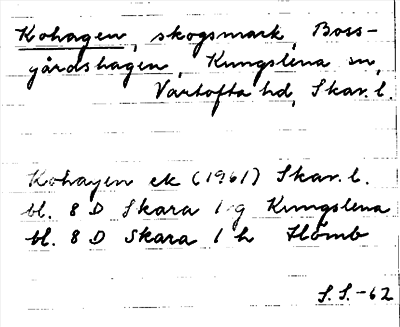 Kohagen, skogsmark, Boss-
gårdshagen, Kungslena sn,
Vartofta hd, Skar. l.
Kohagen ek (1961) Skar. l.
bl. 8 D Skara 1 g Kungslena
bl. 8 D Skara 1 h Hömb
S. S. -62